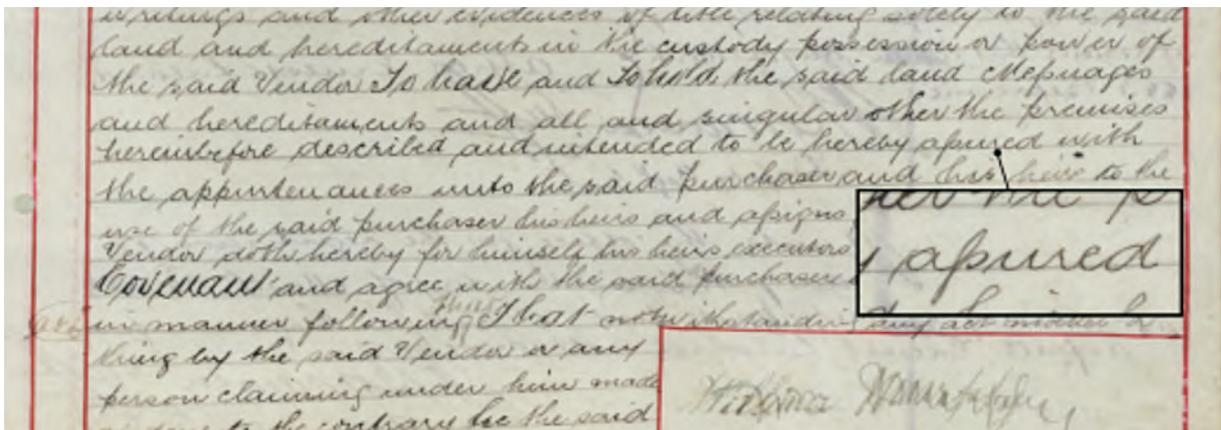 writings and other evidences of title relating solely to the said
land and hereditaments in the custody possession or power of
the said Vendor To have and To hold the said land Messuages
and hereditaments and all and singular other the premises
hereinbefore described and intended to be hereby assured with
the appurtenances unto the said purchaser and his heirs to the
use of the said purchaser his heirs and assigns
Vendor doth hereby for himself his heirs executors
Covenant and agree with the said purchaser
in manner following That notwithstanding any act matter or
thing by the said Vendor or any
person claiming under him made
to the contrary he the said
her the p
assured